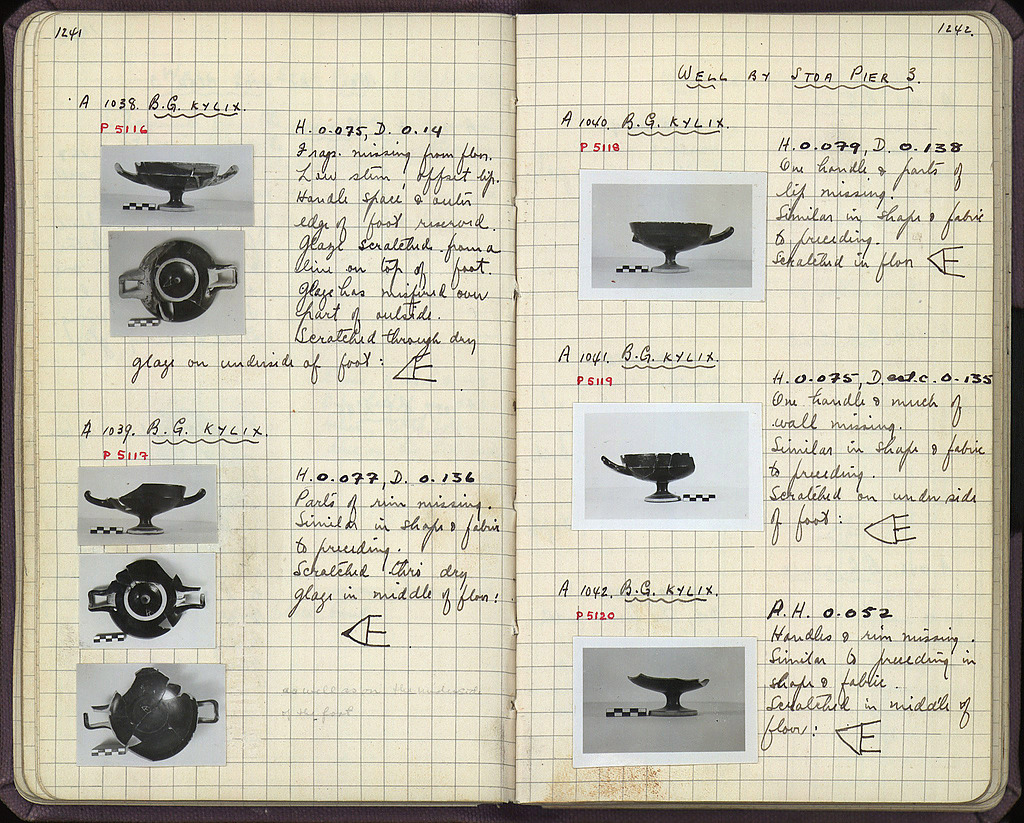 1241
A 1038. B.G. KYLIX.
P 5116
H. 0.075, D. 0.14
Frags. missing from floor.
Low stem, offset lip.
Handle space & outer
edge of foot reserved.
Glaze scratched from a
line on top of foot.
Glaze has misfired over
part of outside.
Scratched through dry
glaze on underside of foot:
A 1039. B.G. KYLIX.
P 5117
H. 0.077, D. 0.136
Parts of rim missing.
Similar in shape & fabric
to preceding.
Scratched thro dry
glaze in middle of floor:
as well as on the undersid
of the foot
1242.
WELL BY STOA PIER 3.
A 1040. B.G. KYLIX.
P 5118
H. 0.079, D. 0.138
One handle & parts of
lip missing.
Similar in shape & fabric
to preceding.
Scratched in floor
A 1041. B.G. KYLIX.
P 5119
H. 0.075, D. est. c. 0.135
One handle & much of
wall missing.
Similar in shape & fabric
to preceding.
Scratched on under side
of foot:
A 1042. B.G. KYLIX.
P 5120
P.H. 0.052
Handles & rim missing.
Similar to preceding in
shape & fabric.
Scratched in middle of
floor: